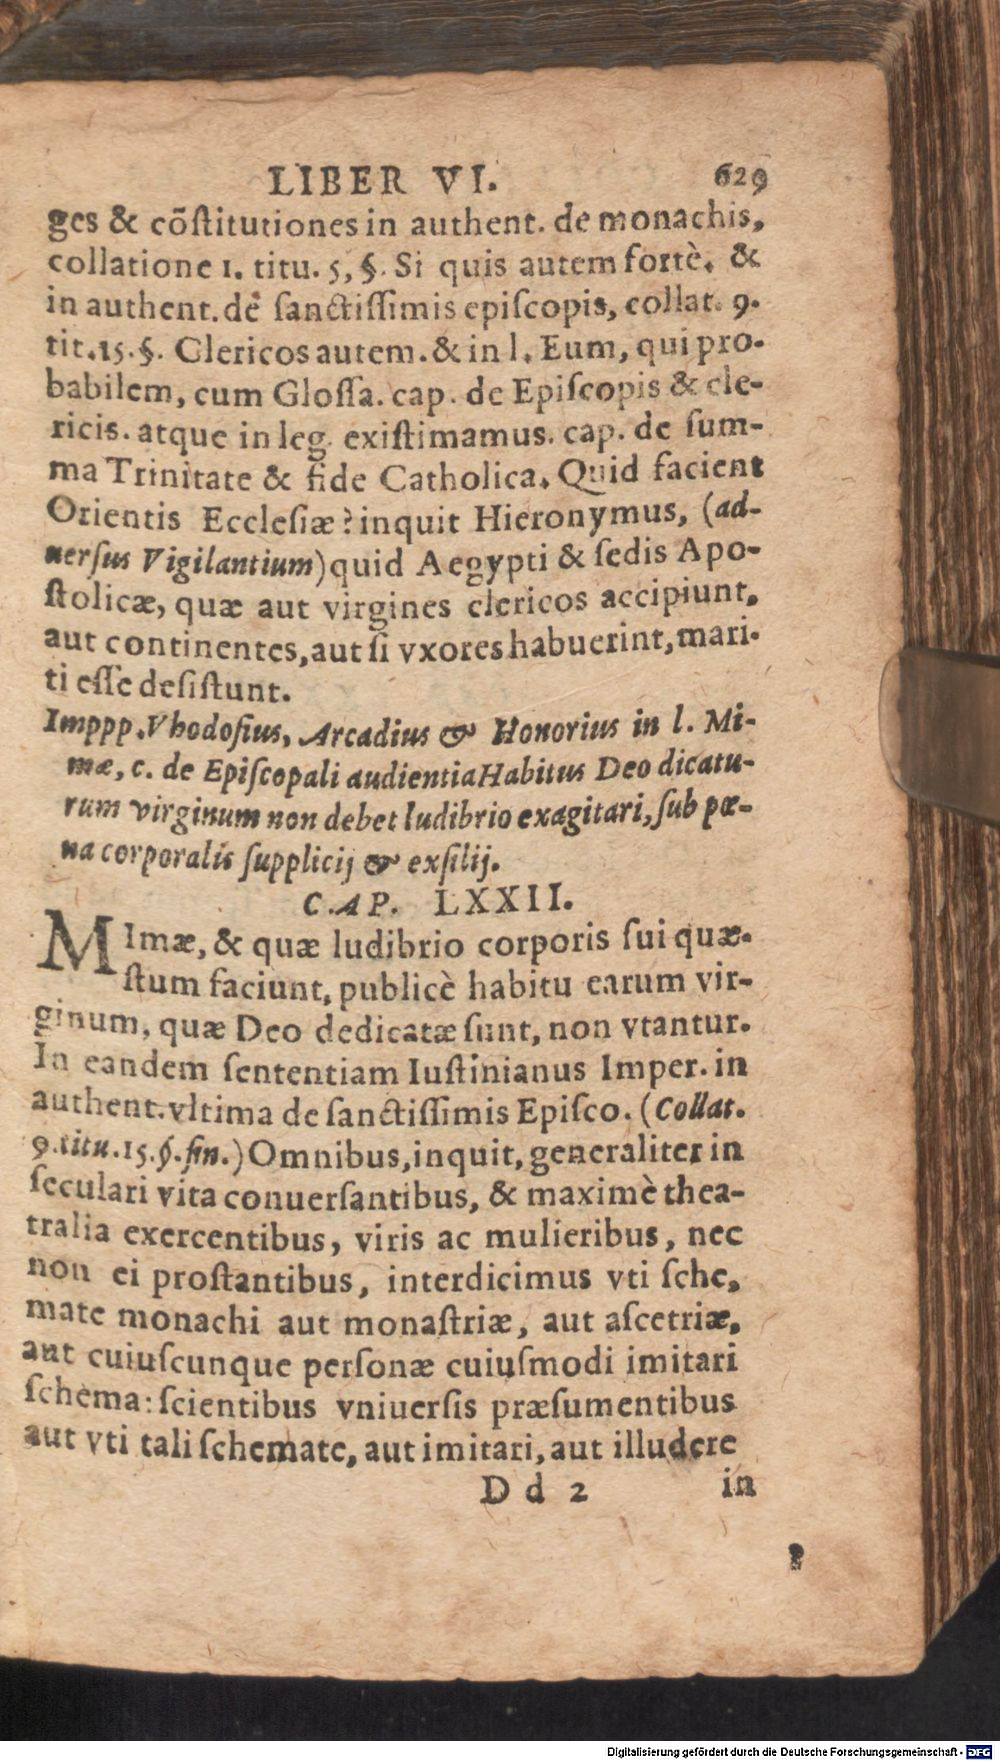 LIBER VI. 629
ges & cõſtitutiones in authent. de monachis,
collatione 1. titu. 5, §. Si quis autem fortè. &
in authent. de ſanctiſſimis epiſcopis, collat. 9.
tit. 15. §. Clericos autem. & in l. Eum, qui pro-
babilem, cum Gloſſa. cap. de Epiſcopis & cle-
ricis. atque in leg. existimamus. cap. de ſum-
ma Trinitate & fide Catholica. Quid facient
Orientis Eccleſiæ? inquit Hieronymus, (ad-
uerſus Vigilantium) quid Aegypti & ſedis Apo-
ſtolicæ, quæ aut virgines clericos accipiunt,
aut continentes, aut ſi vxores habuerint, mari-
ti eſſe deſiſtunt.
Imppp. Vhodoſius, Arcadius & Honorius in l. Mi-
mæ, c. de Epiſcopali audientia Habitus Deo dicatu-
rum virginum non debet ludibrio exagitari, ſub pœ-
na corporalis ſupplicij & exſilij.
C. AP. LXXII.
MImæ, & quæ ludibrio corporis ſui quæ-
ſtum faciunt, publicè habitu earum vir-
ginum, quæ Deo dedicatæ ſunt, non vtantur.
In eandem ſententiam Iuſtinianus Imper. in
authent. vltima de ſanctiſſimis Epiſco. (Collat.
9. titu. 15. §. fin.) Omnibus, inquit, generaliter in
ſeculari vita conuerſantibus, & maximè thea-
tralia exercentibus, viris ac mulieribus, nec
non ei proſtantibus, interdicimus vti ſche,
mate monachi aut monaſtriæ, aut aſcetriæ,
aut cuiuſcunque perſonæ cuiuſmodi imitari
ſchema: ſcientibus vniuerſis præſumentibus
aut vti tali ſchemate, aut imitari, aut illudere
D d 2 in
Digitalisierung gefördert durch die Deutsche Forschungsgemeinschaft - DFG